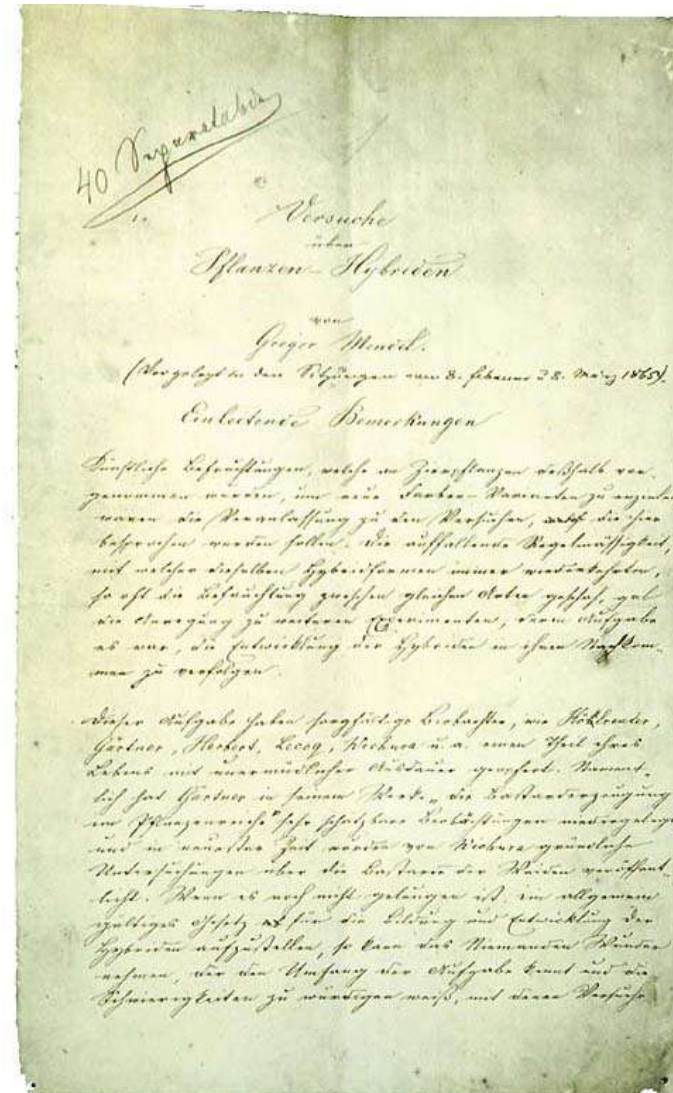 40 Separatabdr
1.
Versuche
über
Pflanzen-Hybriden
von
Gregor Mendel.
(Vorgelegt in den Sitzungen vom 8. Februar u 8. März 1865).
Einleitende Bemerkungen
Künstliche Befruchtungen, welche an Zierpflanzen deßhalb vor-
genommen wurden, um neue Farben-Varianten zu erzielen
waren die Veranlassung zu den Versuchen, die hier
besprochen werden sollen. Die auffallende Regelmässigkeit,
mit welcher dieselben Hybridformen immer wiederkehrten,
so oft die Befruchtung zwischen gleichen Arten geschah, gab
die Anregung zu weiteren Experimenten, deren Aufgabe
es war, die Entwicklung der Hybriden in ihren Nachkom-
men zu verfolgen.
Dieser Aufgabe haben sorgfältige Beobachter, wie Kölreuter,
Gärtner, Herbert, Lecoq, Wichura u. a. einen Theil ihres
Lebens mit unermüdlicher Ausdauer geopfert. Nament-
lich hat Gärtner in seinem Werke „die Bastarderzeugung
im Pflanzenreiche“ sehr schätzbare Beobachtungen niedergelegt
und in neuester Zeit wurden von Wichura gründliche
Untersuchungen über die Bastarde der Weiden veröffent-
licht. Wenn es noch nicht gelungen ist, ein allgemein
gültiges Gesetz für die Bildung und Entwicklung der
Hybriden aufzustellen, so kann das Niemanden Wunder
nehmen, der den Umfang der Aufgabe kennt und die
Schwierigkeiten zu würdigen weiß, mit denen Versuche